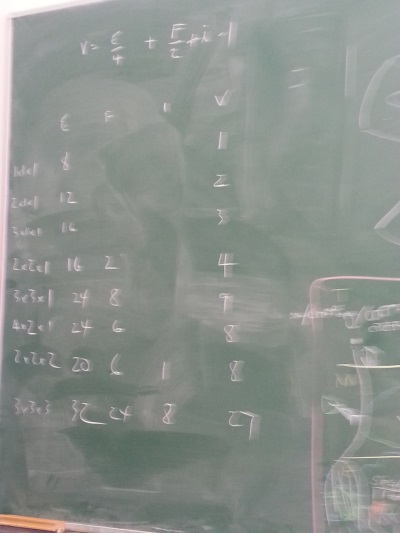 V = E/4 + F/2 + i - 1
E F i V
1x1x1 8 1
2x1x1 12 2
3x1x1 16 3
2x2x1 16 2 4
3x3x1 24 8 9
4x2x1 24 6 8
2x2x2 20 6 1 8
3x3x3 32 24 8 27